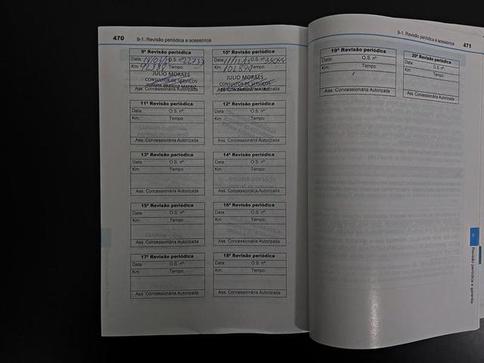 470
9-1. Revisão periódica e acessórios
9ª Revisão periódica
Data: O.S. nº
Km: Tempo:
JULIO MORAES
CONSULTOR DE SERVIÇOS
Ass. Concessionária Autorizada
10ª Revisão periódica
Data: O.S. nº
Km: Tempo:
JULIO MORAES
CONSULTOR DE SERVIÇOS
Ass. Concessionária Autorizada
11ª Revisão periódica
Data: O.S. nº
Km: Tempo:
Ass. Concessionária Autorizada
12ª Revisão periódica
Data: O.S. nº
Km: Tempo:
Ass. Concessionária Autorizada
13ª Revisão periódica
Data: O.S. nº
Km: Tempo:
Ass. Concessionária Autorizada
14ª Revisão periódica
Data: O.S. nº
Km: Tempo:
Ass. Concessionária Autorizada
15ª Revisão periódica
Data: O.S. nº
Km: Tempo:
Ass. Concessionária Autorizada
16ª Revisão periódica
Data: O.S. nº
Km: Tempo:
Ass. Concessionária Autorizada
17ª Revisão periódica
Data: O.S. nº
Km: Tempo:
Ass. Concessionária Autorizada
18ª Revisão periódica
Data: O.S. nº
Km: Tempo:
Ass. Concessionária Autorizada
9-1. Revisão periódica e acessórios
471
19ª Revisão periódica
Data: O.S. nº
Km: Tempo:
Ass. Concessionária Autorizada
20ª Revisão periódica
Data: O.S. nº
Km: Tempo:
Ass. Concessionária Autorizada
9
Revisão periódica e garantia